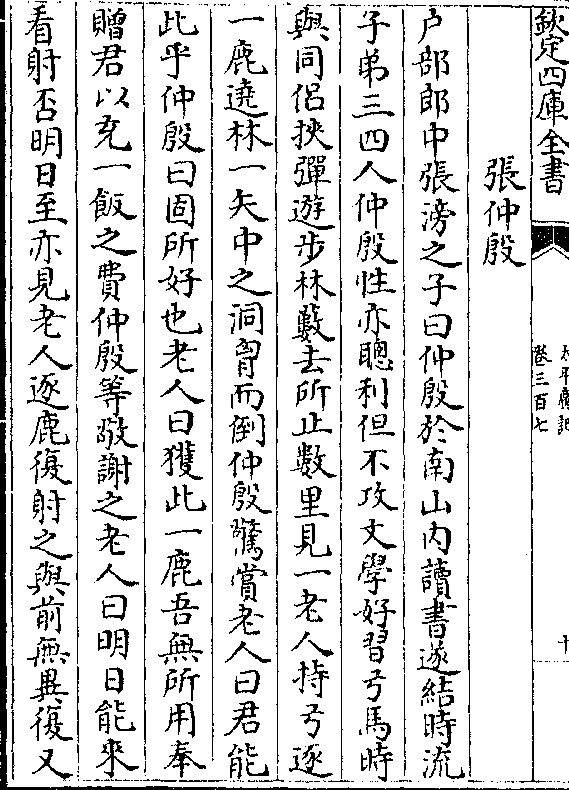 欽定四庫全書
太平廣記
卷三百七
張仲殷
户部郎中張滂之子曰仲殷於南山内讀書遂結時流
子弟三四人仲殷性亦聰利但不攻文學好習弓馬時
與同侣挾彈遊步林藪去所止數里見一老人持弓逐
一鹿遶林一矢中之洞胷而倒仲殷驚賞老人曰君能
此乎仲殷曰固所好也老人曰獲此一鹿吾無所用奉
贈君以充一飯之費仲殷等敬謝之老人曰明日能來
看射否明日至亦見老人逐鹿復射之與前無異復又